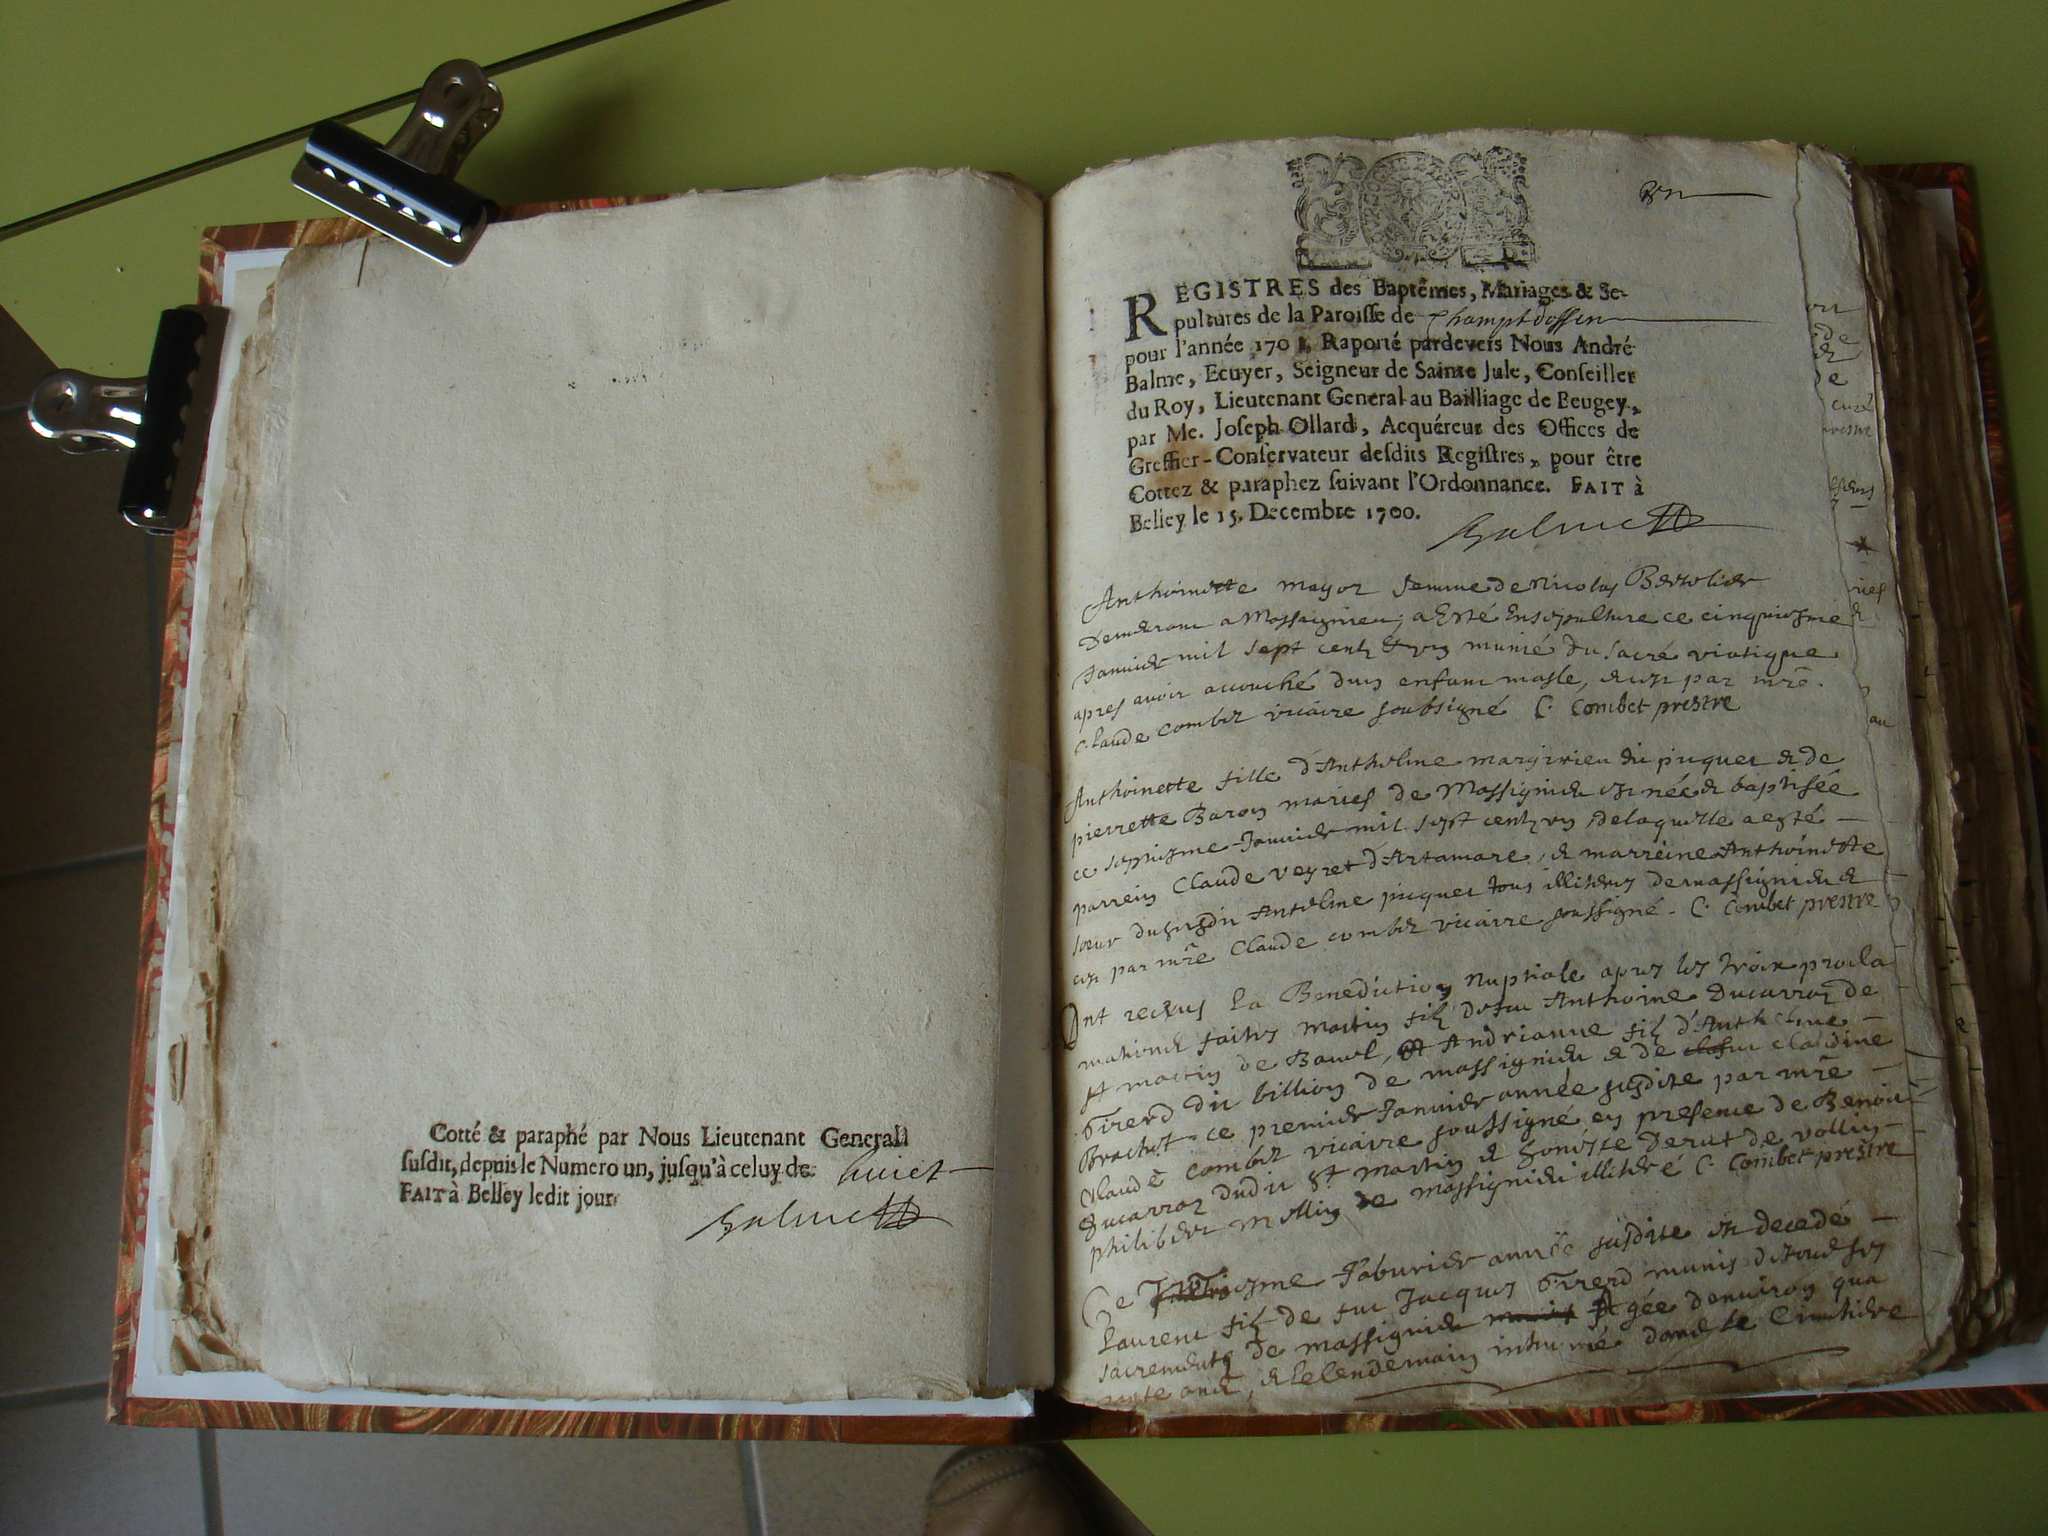 Cotté & paraphé par Nous Lieutenant Generall
susdit, depuis le Numero un, jusqu'à celuy de huict
FAIT à Belley ledit jour
un
REGISTRES des Baptêmes, Mariages & Se-
pultures de la Paroisse de Champtdossin
pour l'année 1701, Raporté pardevers Nous André
Balme, Ecuyer, Seigneur de Sainte Jule, Conseiller
du Roy, Lieutenant General au Bailliage de Beugey,
par Me. Joseph Ollard, Acquéreur des Offices de
Greffier-Conservateur desdits Registres, pour être
Cottez & paraphez suivant l'Ordonnance. FAIT à
Belley le 15. Decembre 1700.
Anthoinette mayor femme de Nicolas Bertolier
a Massignieu, a esté ensepulture ce cinquiesme
Janvier mil sept centz et un munié du sacré viatique
apres avoir accouché dun enfant masle, par mre.
Claude combet vicaire soubsigné C. Combet prestre
Anthoinette fille d'Anthelme du picquet & de
pierrette Baron mariés de Massignieu est née & baptisée
ce septiesme Janvier mil sept centz un, delaquelle a esté
parrein Claude veyret d'Artamare, & marreine Anthoinette
sœur dususdit Antelme picquet tous illiteres de massignieu &
par mre Claude combet vicaire soussigné. C. Combet prestre
Ont receus la Benediction Nuptiale apres les trois procla
mations faites martin filz de feu Anthoine Ducarroz de
st martin de Bavel, et Andrianne fille d'Anthelme
Tirerd dit billion de massignieu & de claudine
Brachet ce premier Janvier année susdite par mre
Claude combet vicaire soussigné en presence de Benoit
Ducarroz dudit st martin & honeste de vollin
philibert mollin de massignieu illiteré C. Combet prestre
Ce fabvrier année susdite est decedé
Laurent filz de feu Jacques Tirerd munis de tous ses
sacrementz de massignieu Agée d'environ qua
rante ans, & le lendemain inhumé dans le Cimetière